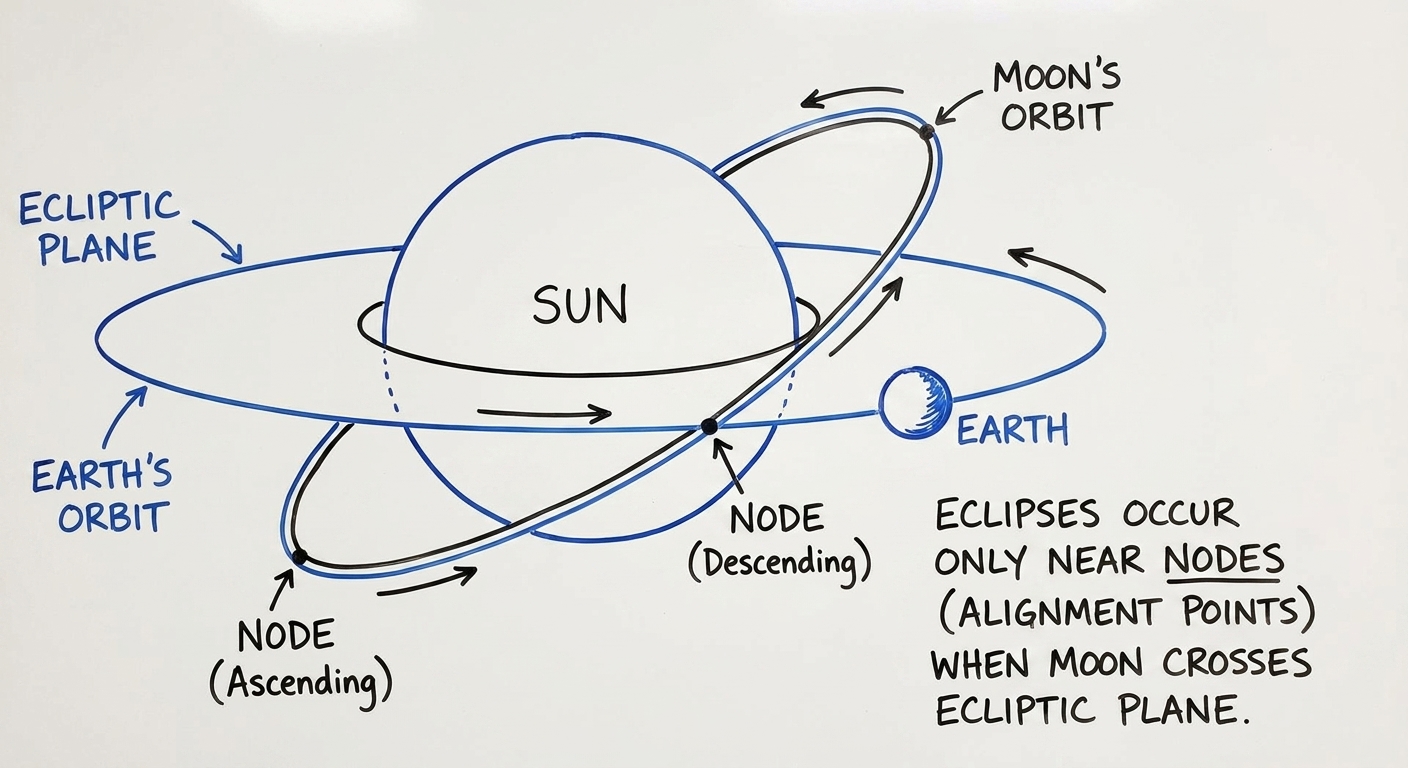 MOON'S
ORBIT
ECLIPTIC
PLANE
SUN
EARTH
EARTH'S
ORBIT
NODE
(Descending)
NODE
(Ascending)
ECLIPSES OCCUR
ONLY NEAR NODES
(ALIGNMENT POINTS)
WHEN MOON CROSSES
ECLIPTIC PLANE.